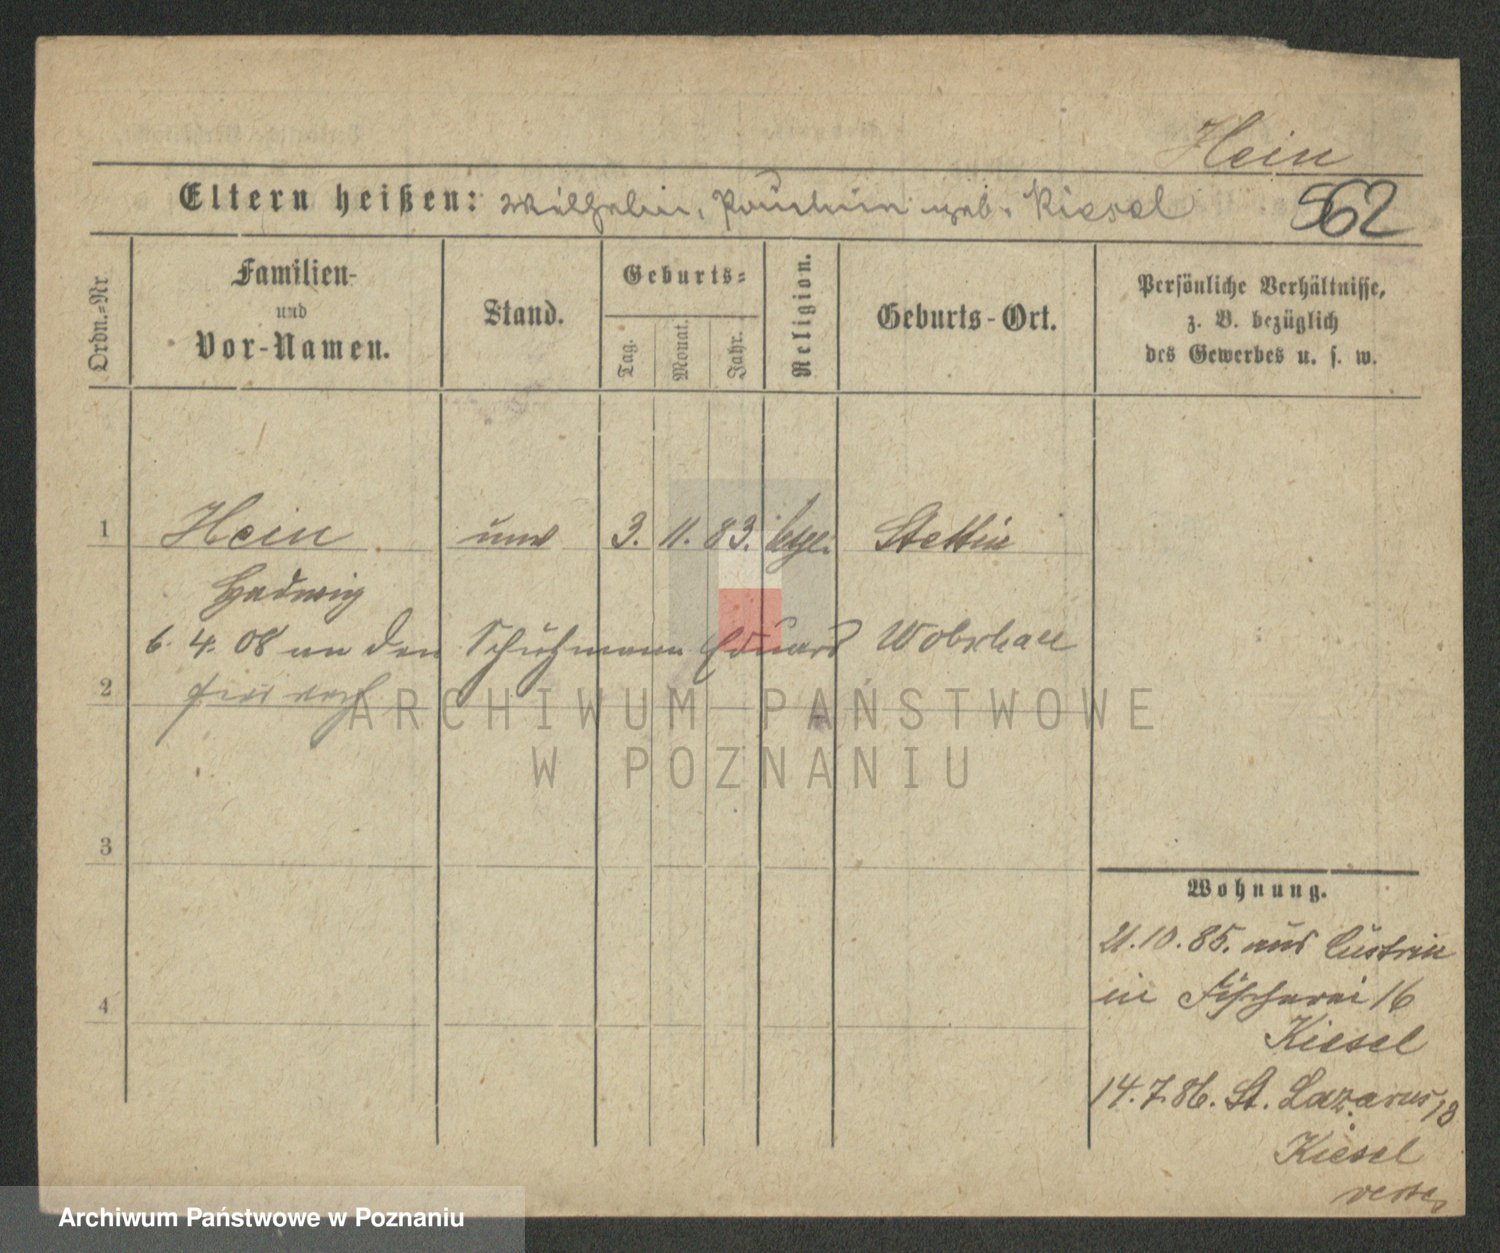 Hein
Eltern heißen: Wilhelm, Pauline geb. Kiesel
562
Ordn.-Nr.
Familien-
und
Vor-Namen.
Stand.
Geburts-
Tag.
Monat.
Jahr.
Religion.
Geburts-Ort.
Persönliche Verhältnisse,
z. B. bezüglich
des Gewerbes u. s. w.
1 Hein unv 3. 11. 83. Stettin
Hedwig
6. 4. 08 an den Schutzmann Eduard
2
3
4
Wohnung.
21.10.85. aus Cüstrin
in Fischerei 16
Kiesel
14.7.86. St. Lazarus 18
Kiesel
ARCHIWUM PAŃSTWOWE
W POZNANIU
Archiwum Państwowe w Poznaniu